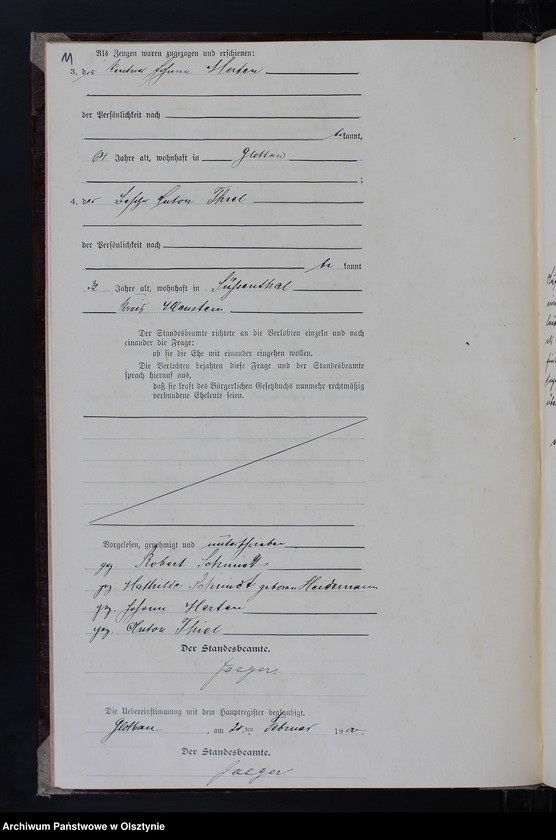 11
Als Zeugen waren zugezogen und erschienen:
3. der Rentner Johann Herten
der Persönlichkeit nach
be kannt,
64 Jahre alt, wohnhaft in Glottau
;
4. der Anton Thiel
der Persönlichkeit nach
be kannt
Jahre alt, wohnhaft in Süssenthal
Kreis Allenstein
Der Standesbeamte richtete an die Verlobten einzeln und nach
einander die Frage:
ob sie die Ehe mit einander eingehen wollen.
Die Verlobten bejahten diese Frage und der Standesbeamte
sprach hierauf aus,
daß sie kraft des Bürgerlichen Gesetzbuchs nunmehr rechtmäßig
verbundene Eheleute seien.
Vorgelesen, genehmigt und unterschrieben
gez. Robert Schmidt
gez. Mathilde Schmidt geborene Heidemann
gez. Johann Herten
gez. Anton Thiel
Der Standesbeamte.
Jaeger.
Die Uebereinstimmung mit dem Hauptregister beglaubigt.
Glottau, am 20. ten Februar 1900.
Der Standesbeamte.
Jaeger
Archiwum Państwowe w Olsztynie